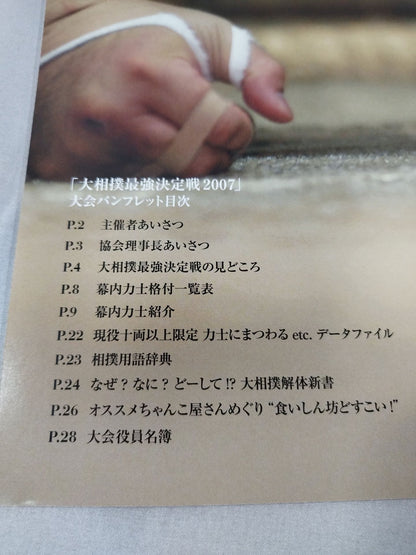 「大相撲最強決定戦2007」
大会パンフレット目次
P.2 主催者あいさつ
P.3 協会理事長あいさつ
P.4 大相撲最強決定戦の見どころ
P.8 幕内力士格付一覧表
P.9 幕内力士紹介
P.22 現役十両以上限定 力士にまつわる etc. データファイル
P.23 相撲用語辞典
P.24 なぜ?なに?どーして!? 大相撲解体新書
P.26 オススメちゃんこ屋さんめぐり “食いしん坊どすこい!”
P.28 大会役員名簿